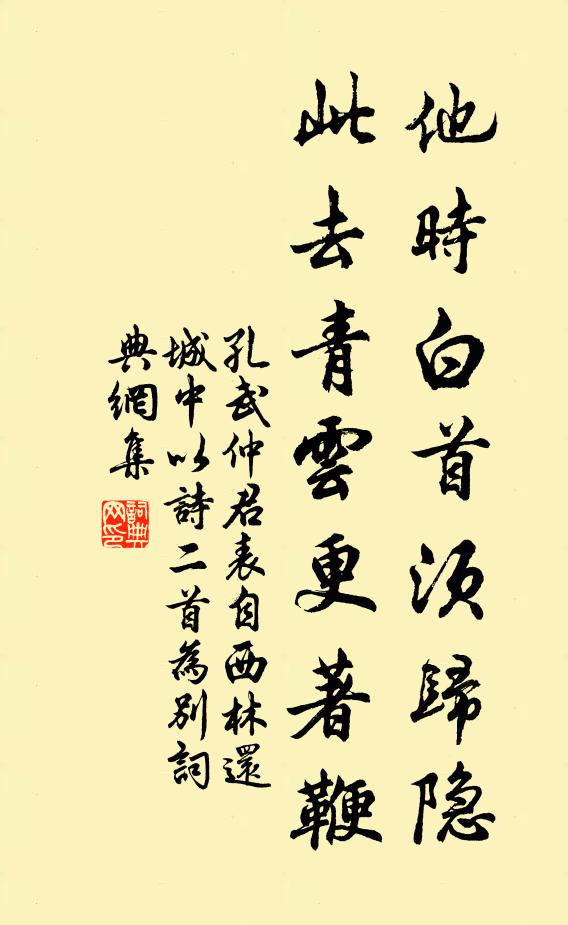 他時白首須歸隐
此去青雲更著鞭
孔武仲君表自西林還
城中以詩二首為别詞
典網集
詞典网印